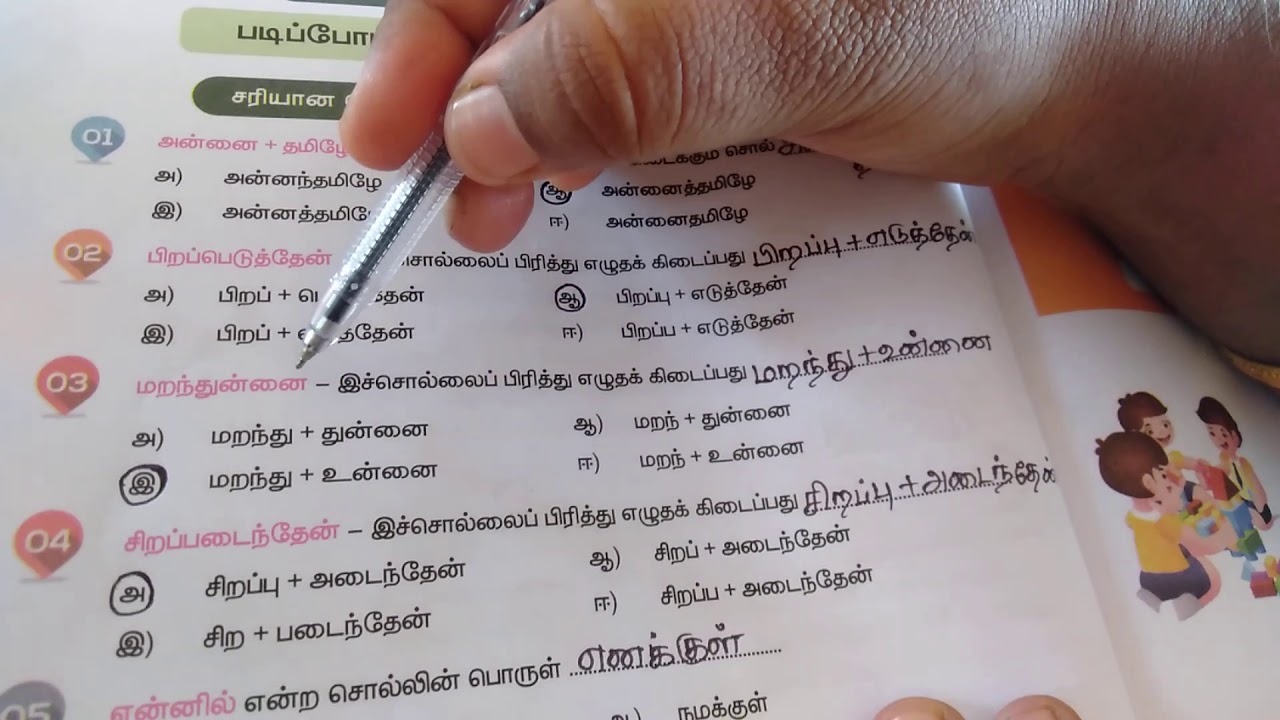 படிப்போ
சரியான
01 அன்னை + தமிழே சொல்
அ) அன்னந்தமிழே ஆ) அன்னைத்தமிழே
இ) அன்னத்தமிழே ஈ) அன்னைதமிழே
02 பிறப்பெடுத்தேன் சொல்லைப் பிரித்து எழுதக் கிடைப்பது பிறப்பு + எடுத்தேன்
அ) பிறப் + ஆ) பிறப்பு + எடுத்தேன்
இ) பிறப் + ஈ) பிறப்ப + எடுத்தேன்
03 மறந்துன்னை – இச்சொல்லைப் பிரித்து எழுதக் கிடைப்பது மறந்து + உன்னை
அ) மறந்து + துன்னை ஆ) மறந் + துன்னை
இ) மறந்து + உன்னை ஈ) மறந் + உன்னை
04 சிறப்படைந்தேன் – இச்சொல்லைப் பிரித்து எழுதக் கிடைப்பது சிறப்பு + அடைந்தேன்
அ) சிறப்பு + அடைந்தேன் ஆ) சிறப் + அடைந்தேன்
இ) சிற + படைந்தேன் ஈ) சிறப்ப + அடைந்தேன்
05 என்னில் என்ற சொல்லின் பொருள் எனக்குள்
நமக்குள்